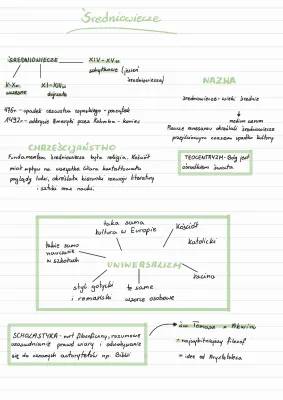 Średniowiecze
ŚREDNIOWIECZE
XIV-XV w
schyłkowe (jesień
średniowiecza)
V-X w.
wczesne
XI-XIII w
dojrzałe
476r - upadek cesarstwa rzymskiego - początek
1492r - odkrycie Ameryki przez Kolumba - koniec
NAZWA
średniowiecze - wieki średnie
medium aevum
Nazwę renesansu określali średniowiecze
przejściowym czasem upadku kultury
CHRZEŚCIJAŃSTWO
Fundamentem średniowiecza była religia. Kościół
miał wpływ na wszystko. Wiara kształtowała
poglądy ludzi, określała kierunki rozwoju literatury
i sztuki oraz nauki.
TEOCENTRYZM - Bóg jest
ośrodkiem świata
taka sama
kultura w Europie
kościół
katolicki
takie samo
nauczanie
w szkołach
UNIWERSALIZM
łacina
styl gotycki
i romański
te same
wzorce osobowe
SCHOLASTYKA - nurt filozoficzny, rozumowe
uzasadnianie prawd wiary i odwoływanie
się do uznanych autorytetów np. Biblii
św. Tomasz z Akwinu
najwybitniejszy filozof
idee od Arystotelesa